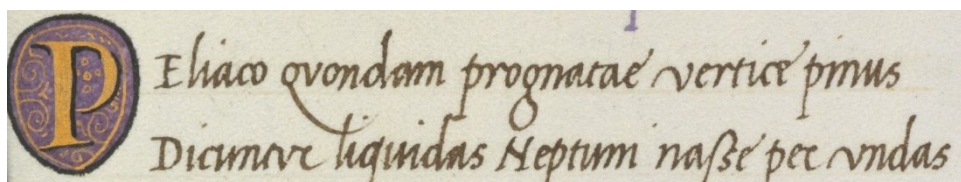 PEliaco qvondam prognatae vertice pinus
Dicuntvr liquidas Neptuni naſse per vndas